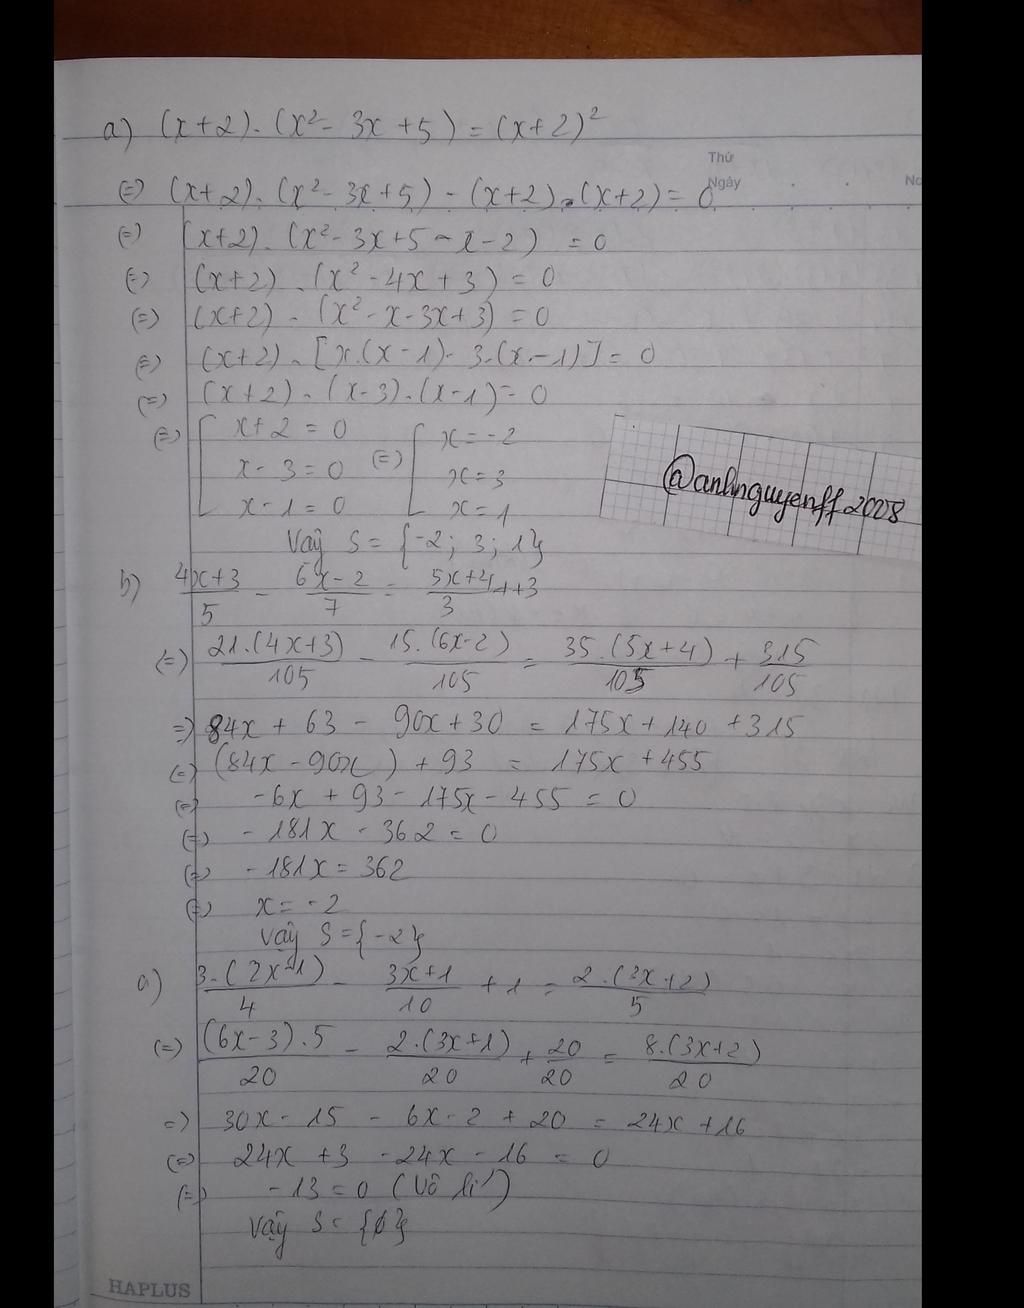 a) (x+2).(x²- 3x +5) = (x+2)²
Thứ
Ngày
(=) (x+2).(x²- 3x+5) - (x+2).(x+2) = 0
(=) (x+2).(x²- 3x+5 - x - 2) = 0
(=) (x+2).(x²- 4x + 3) = 0
(=) (x+2).(x²- x - 3x + 3) = 0
(=) (x+2).[x.(x-1) - 3.(x-1)] = 0
(=) (x+2).(x-3).(x-1) = 0
(=) [ x+2 = 0 (=) [ x = -2
x - 3 = 0 x = 3
x - 1 = 0 x = 1
@anhnguyenff2008
Vậy S = {-2; 3; 1}
b) (4x+3)/5 - (6x-2)/7 = (5x+4)/3 + 3
(=) 21.(4x+3)/105 - 15.(6x-2)/105 = 35.(5x+4)/105 + 315/105
=) 84x + 63 - 90x + 30 = 175x + 140 + 315
(=) (84x - 90x) + 93 = 175x + 455
(=) -6x + 93 - 175x - 455 = 0
(=) -181x - 362 = 0
(=) -181x = 362
(=) x = -2
Vậy S = {-2}
a) 3.(2x-1)/4 - (3x+1)/10 + 1 = 2.(3x+2)/5
(=) (6x-3).5/20 - 2.(3x+1)/20 + 20/20 = 8.(3x+2)/20
=) 30x - 15 - 6x - 2 + 20 = 24x + 16
(=) 24x + 3 - 24x - 16 = 0
(=) -13 = 0 (Vô lí)
Vậy S = {∅}
HAPLUS